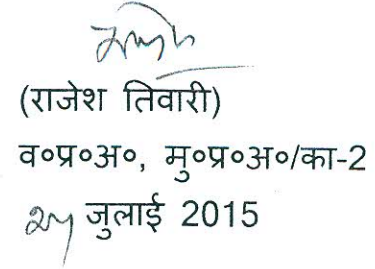 (राजेश तिवारी)
व०प्र०अ०, मु०प्र०अ०/का-2
जुलाई 2015